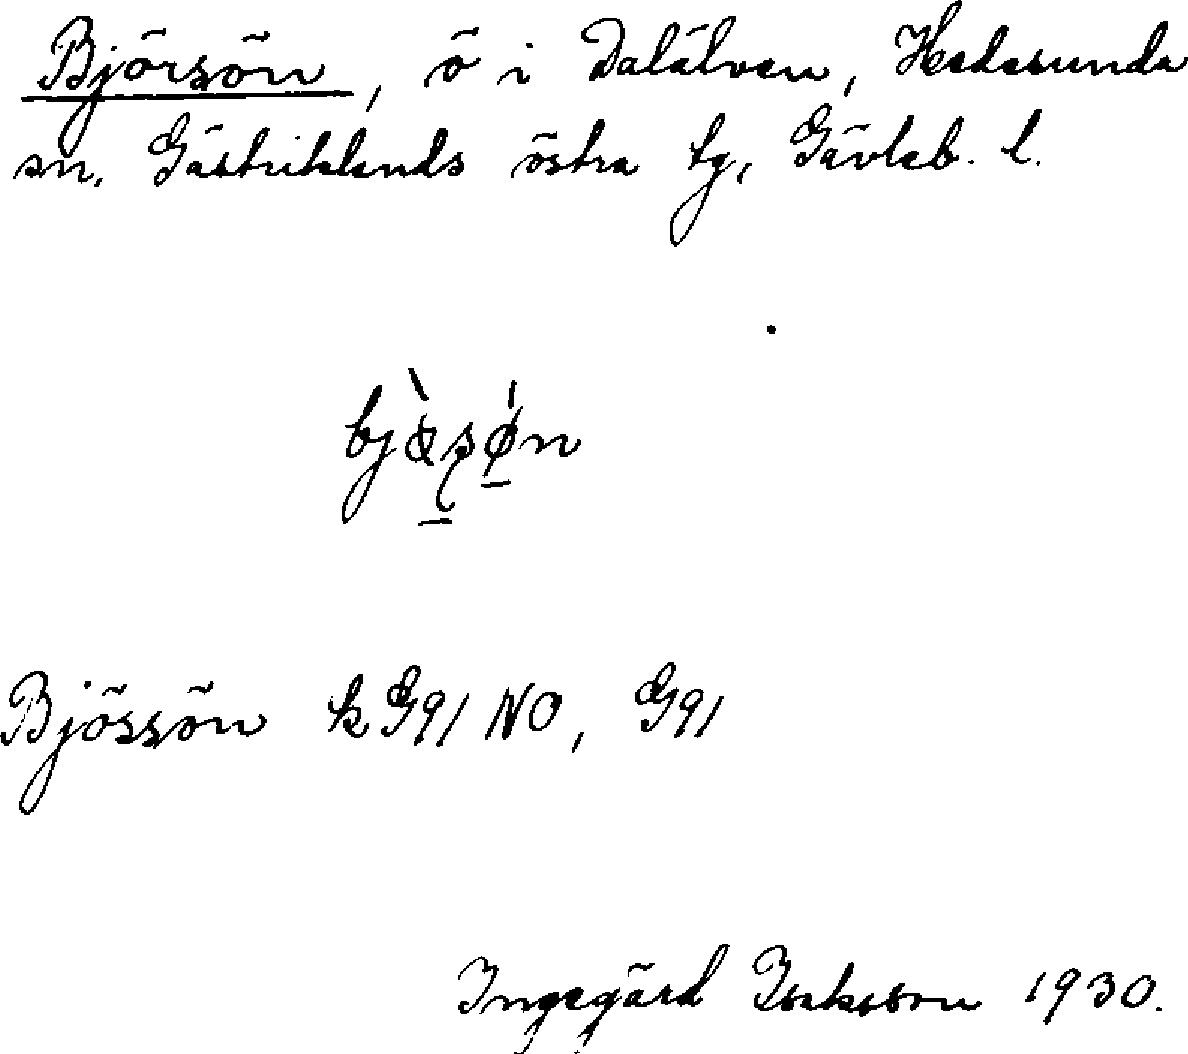 Björsön, ö i Dalälven, Hedesunda
sn. Gästriklands östra tg, Gävleb. l.
Bjössön k G91 NO, G91
Ingegärd Isaksson 1930.